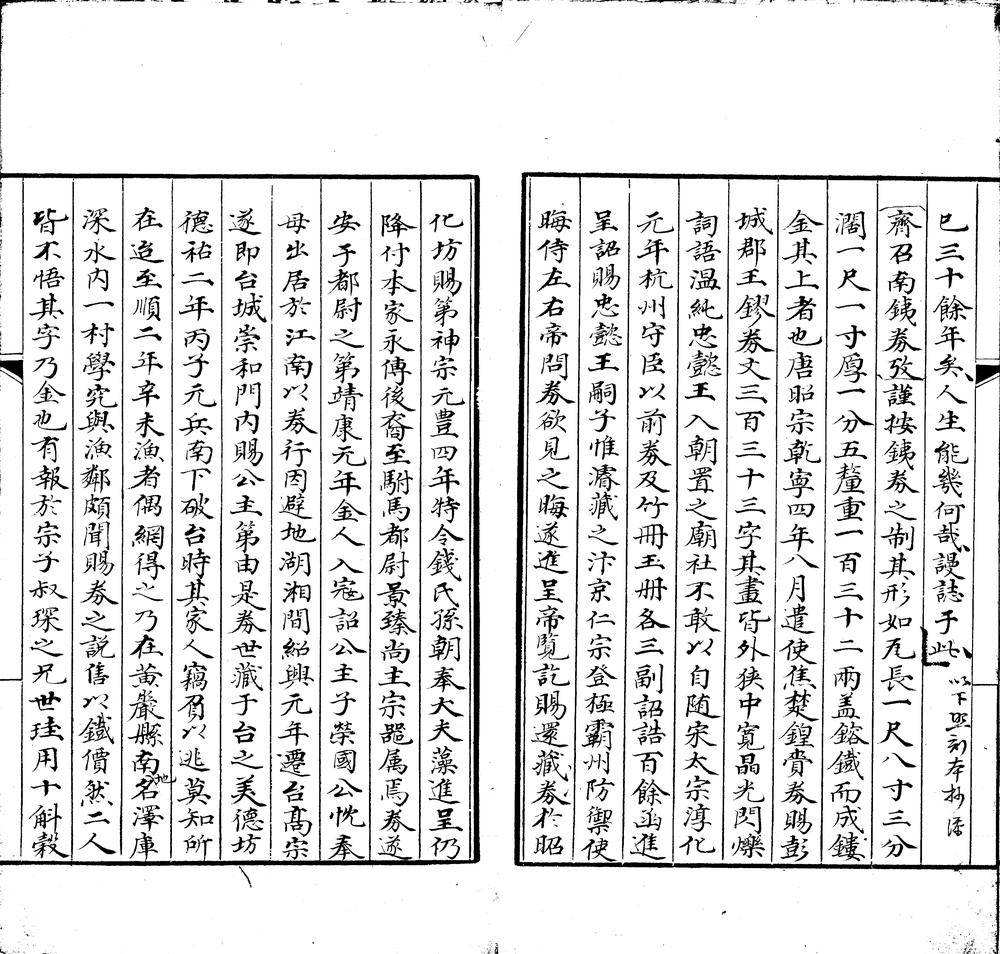 已三十餘年矣人生能幾何哉謾誌于此以下照刻本抄添
齊召南鉄券攷謹按鉄券之制其形如瓦長一尺八寸三分
濶一尺一寸厚一分五釐重一百三十二兩盖鎔鐵而成鏤
金其上者也唐昭宗乾寧四年八月遣使焦楚鍠賫券賜彭
城郡王鏐券文三百三十三字其畫皆外狹中寬晶光閃爍
詞語温純忠懿王入朝置之廟社不敢以自随宋太宗淳化
元年杭州守臣以前券及竹冊玉册各三副詔誥百餘函進
呈詔賜忠懿王嗣子惟濬藏之汴京仁宗登極霸州防禦使
晦侍左右帝問券欲見之晦遂進呈帝覽訖賜還藏券扵昭
化坊賜第神宗元豊四年特令錢氏孫朝奉大夫藻進呈仍
降付本家永傳後裔至駙馬都尉景臻尚主宗噐属焉券遂
安于都尉之第靖康元年金人入寇詔公主子榮國公忱奉
母出居於江南以券行因避地湖湘間紹興元年遷台髙宗
遂即台城崇和門内賜公主第由是券世藏于台之美德坊
德祐二年丙子元兵南下破台時其家人竊負以逃莫知所
在迨至順二年辛未漁者偶網得之乃在黄巖縣南地名澤庫
深水内一村學究與漁鄰頗聞賜券之説售以鐵價然二人
皆不悟其字乃金也有報於宗子叔琛之兄世珪用十斛榖